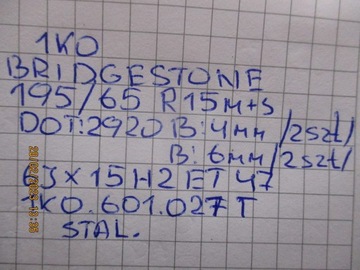 1KO
BRIDGESTONE
195/65 R15 M+S
DOT:2920 B:4mm/2szt/
B:6mm/2szt/
6JX15H2 ET 47
1KO.601.027T
STAL.